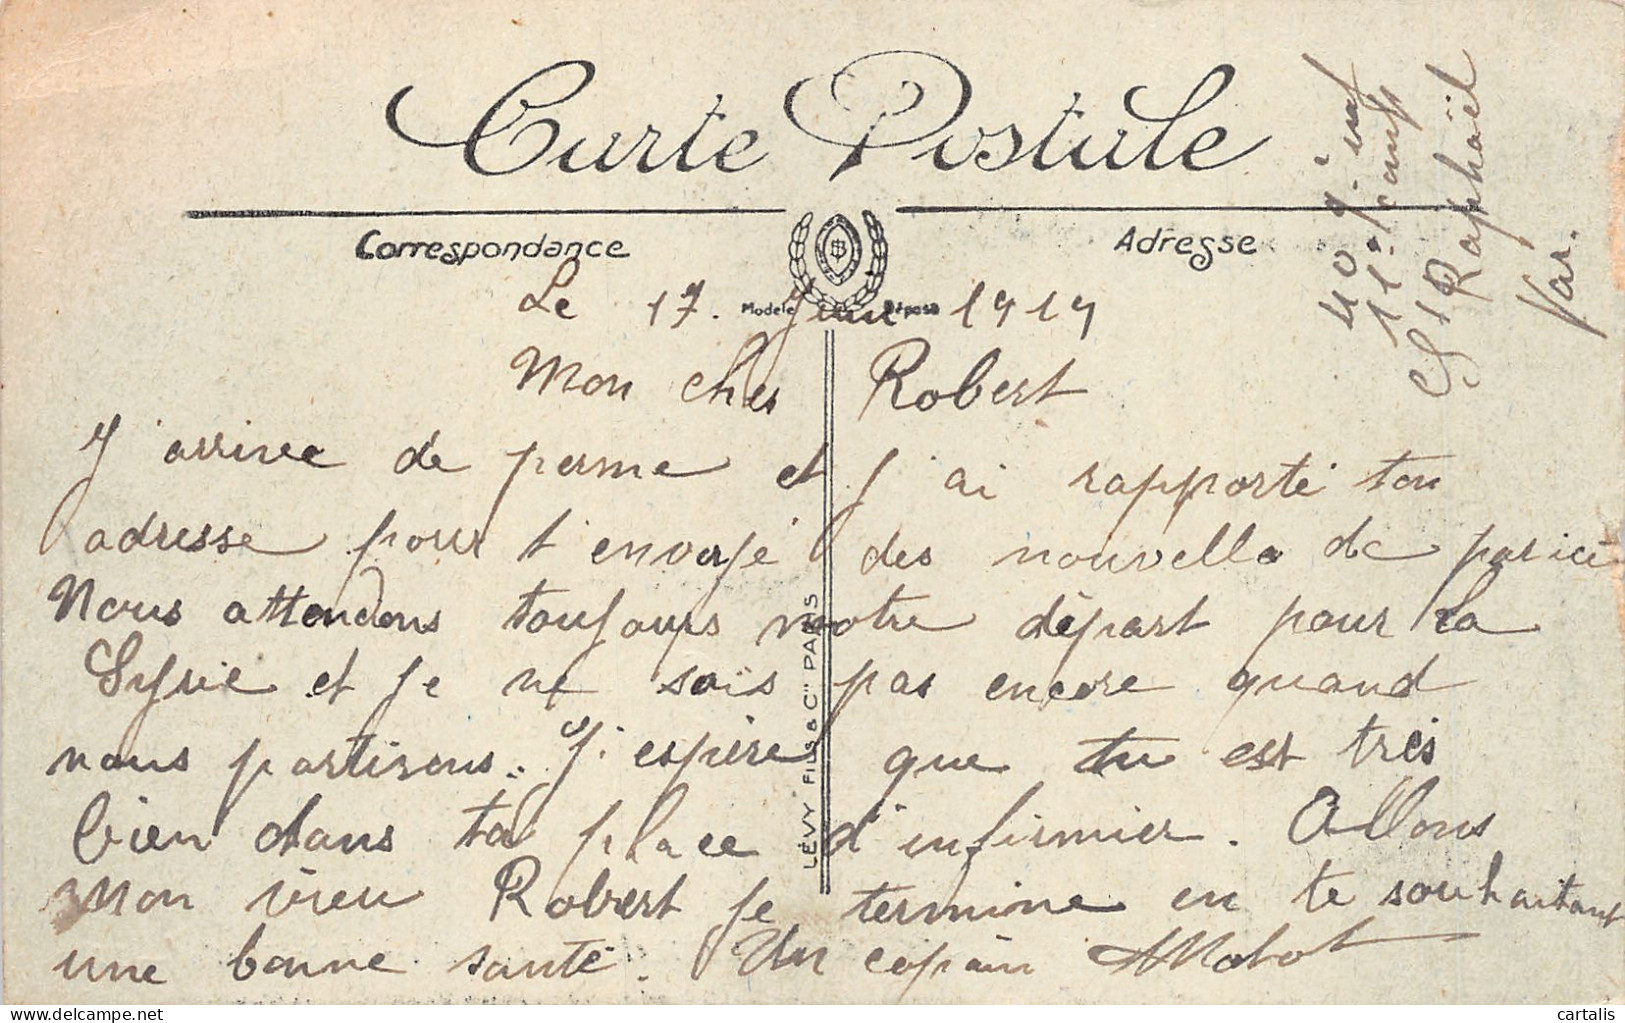 Carte Postale
Correspondance
Adresse
Modèle Déposé
LÉVY FILS & Cie PARIS
40 9. inf
11e camp
St Raphaël
Var.
Le 17. Juin 1919
Mon cher Robert
J'arrive de perme et j'ai rapporté ton
adresse pour t'envoyé des nouvelle de par ici
Nous attendons toujours notre départ pour la
Syrie et je ne sais pas encore quand
nous partirons. J'espère que tu est très
bien dans ta place d'infirmier. Allons
Mon vieu Robert je termine en te souhaitant
une bonne santé. Un copain
www.delcampe.net
cartalis